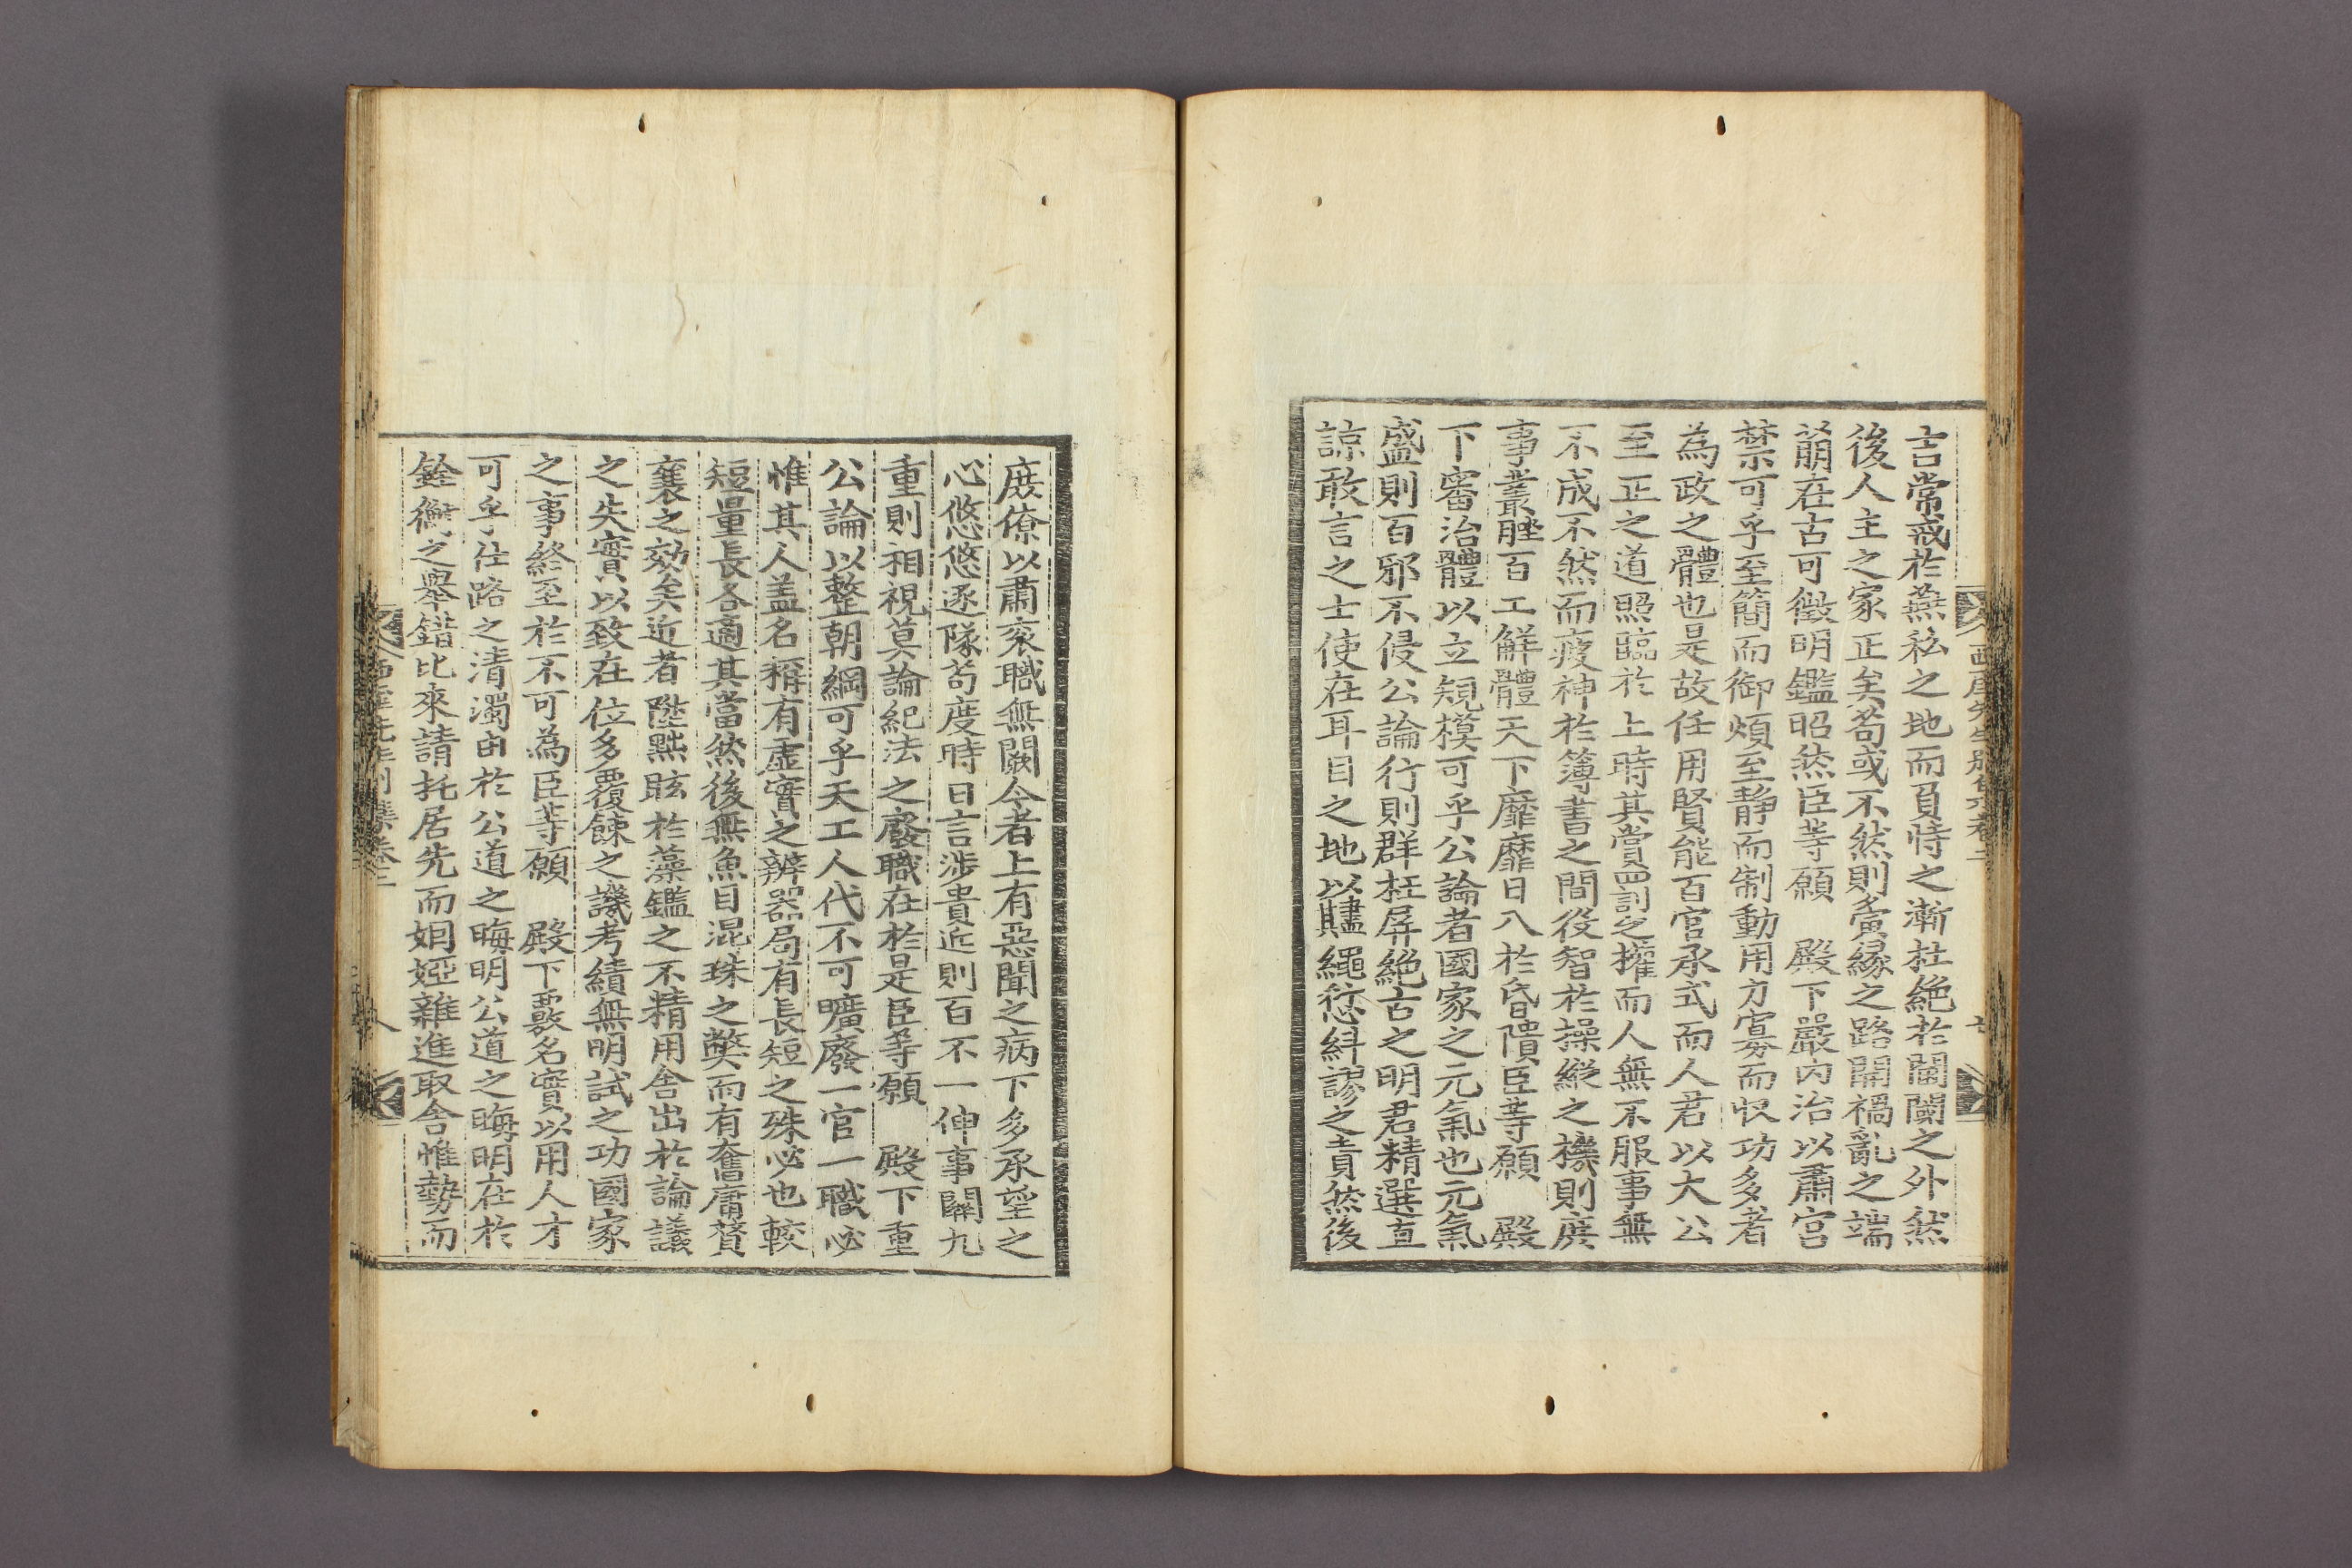 言常戒於燕私之地而負恃之漸杜絶於閫閾之外然
後人主之家正矣苟或不然則夤緣之路開禍亂之端
萠在古可徵明鑑昭然臣等願 殿下嚴內治以肅宮
禁可乎至簡而御煩至靜而制動用方寡而收功多者
為政之體也是故任用賢能百官承式而人君以大公
至正之道照臨於上時其賞罰之權而人無不服事無
不成不然而疲神於簿書之間役智於操縱之機則庶
事叢脞百工解體天下靡靡日入於昏隤臣等願 殿
下審治體以立規模可乎公論者國家之元氣也元氣
盛則百邪不侵公論行則群枉屛絶古之明君精選直
諒敢言之士使在耳目之地以䞋繩愆紏謬之責然後
西厓先生別集卷二 七
庶僚以肅衮職無闕今者上有惡聞之病下多承望之
心悠悠逐隊苟度時日言涉貴近則百不一伸事關九
重則相視莫論紀法之廢職在於是臣等願 殿下重
公論以整朝綱可乎天工人代不可曠廢一官一職必
惟其人盖名稱有虛實之辨器局有長短之殊必也較
短量長各適其當然後無魚目混珠之弊而有奮庸賛
襄之效矣近者陞黜眩於藻鑑之不精用舍出於論議
之失實以致在位多覆餗之譏考績無明試之功國家
之事終至於不可為臣等願 殿下覈名實以用人才
可乎仕路之清濁由於公道之晦明公道之晦明在於
銓衡之擧錯比來請托居先而姻婭雜進取舍惟勢而
西厓先生別集卷二 八